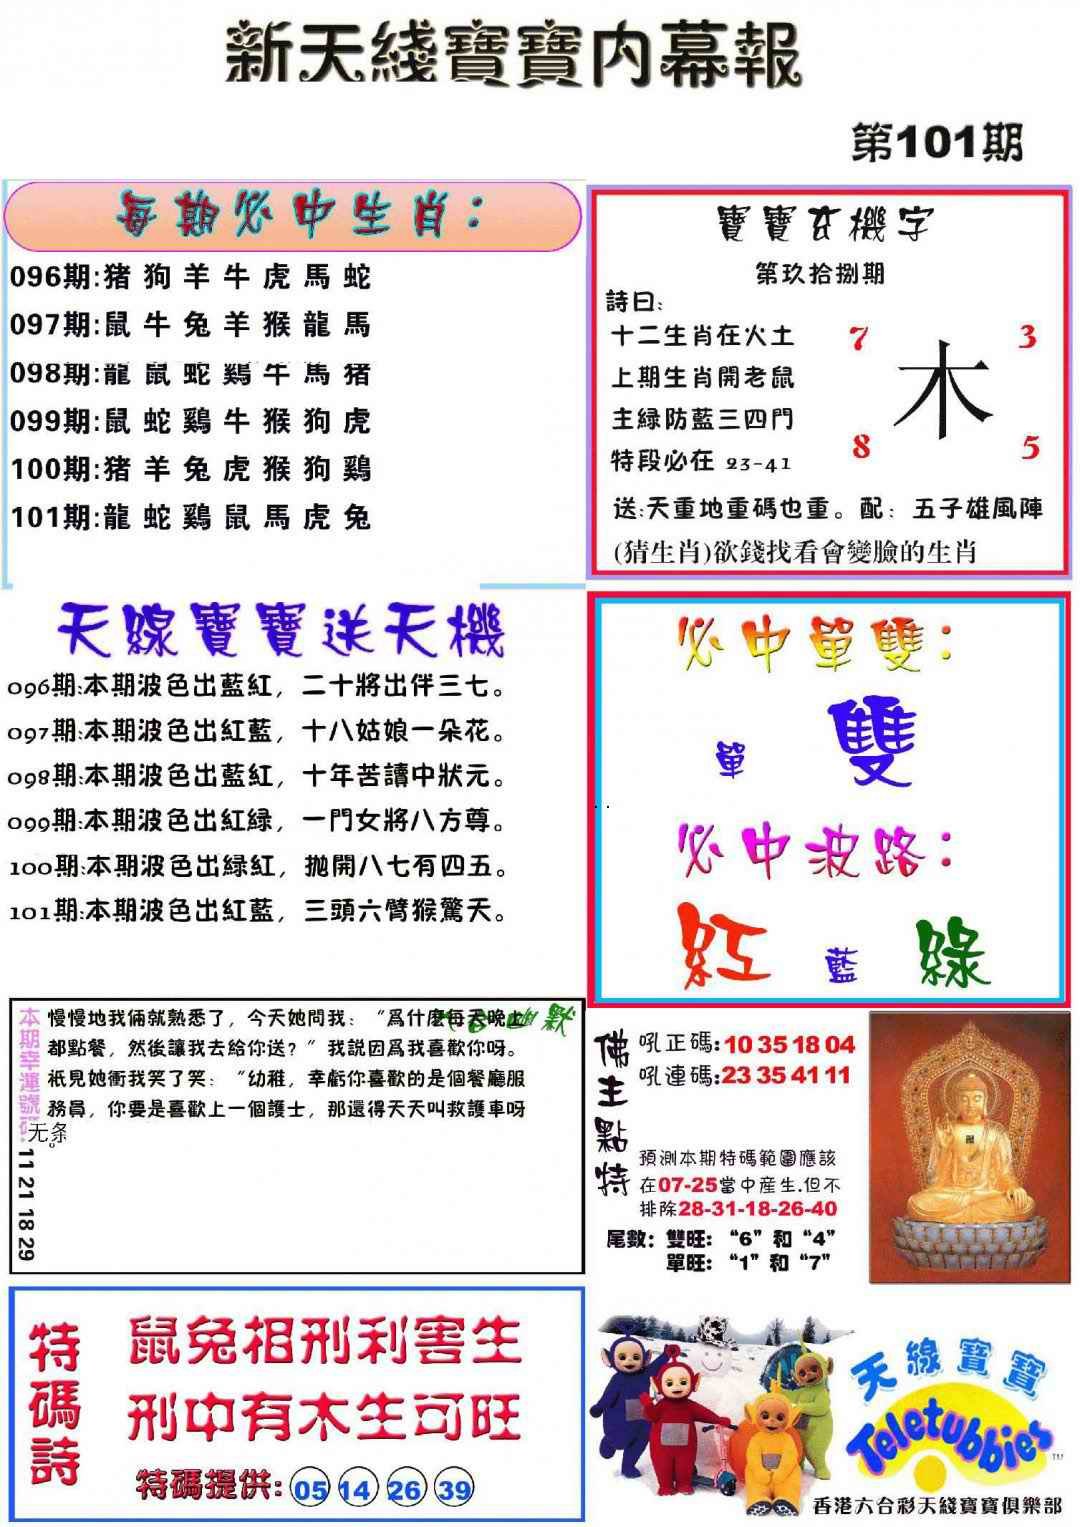 新天綫寶寶内幕報
第101期
每期必中生肖：
096期:猪狗羊牛虎馬蛇
097期:鼠牛兔羊猴龍馬
098期:龍鼠蛇鷄牛馬猪
099期:鼠蛇鷄牛猴狗虎
100期:猪羊兔虎猴狗鷄
101期:龍蛇鷄鼠馬虎兔
寶寶玄機字
第玖拾捌期
詩曰:
十二生肖在火土
上期生肖開老鼠
主緑防藍三四門
特段必在 23-41
7 3
木
8 5
送:天重地重碼也重。配：五子雄風陣
(猜生肖)欲錢找看會變臉的生肖
天線寶寶送天機
096期:本期波色出藍紅，二十將出伴三七。
097期:本期波色出紅藍，十八姑娘一朵花。
098期:本期波色出藍紅，十年苦讀中狀元。
099期:本期波色出紅緑，一門女將八方尊。
100期:本期波色出緑紅，拋開八七有四五。
101期:本期波色出紅藍，三頭六臂猴驚天。
必中單雙：
單 雙
必中波路：
紅 藍 綠
幽默
慢慢地我倆就熟悉了，今天她問我：“爲什麽每天晚上
都點餐，然後讓我去給你送？”我説因爲我喜歡你呀。
衹見她衝我笑了笑：“幼稚，幸虧你喜歡的是個餐廳服
務員，你要是喜歡上一個護士，那還得天天叫救護車呀
。
无条
本期幸運號碼:11 21 18 29
佛主點特
吼正碼:10 35 18 04
吼連碼:23 35 41 11
預測本期特碼範圍應該
在07-25當中産生.但不
排除28-31-18-26-40
尾數：雙旺：“6”和“4”
單旺：“1”和“7”
特碼詩
鼠兔相刑利害生
刑中有木生可旺
特碼提供: 05 14 26 39
天線寶寶
Teletubbies
TM
香港六合彩天綫寶寶俱樂部